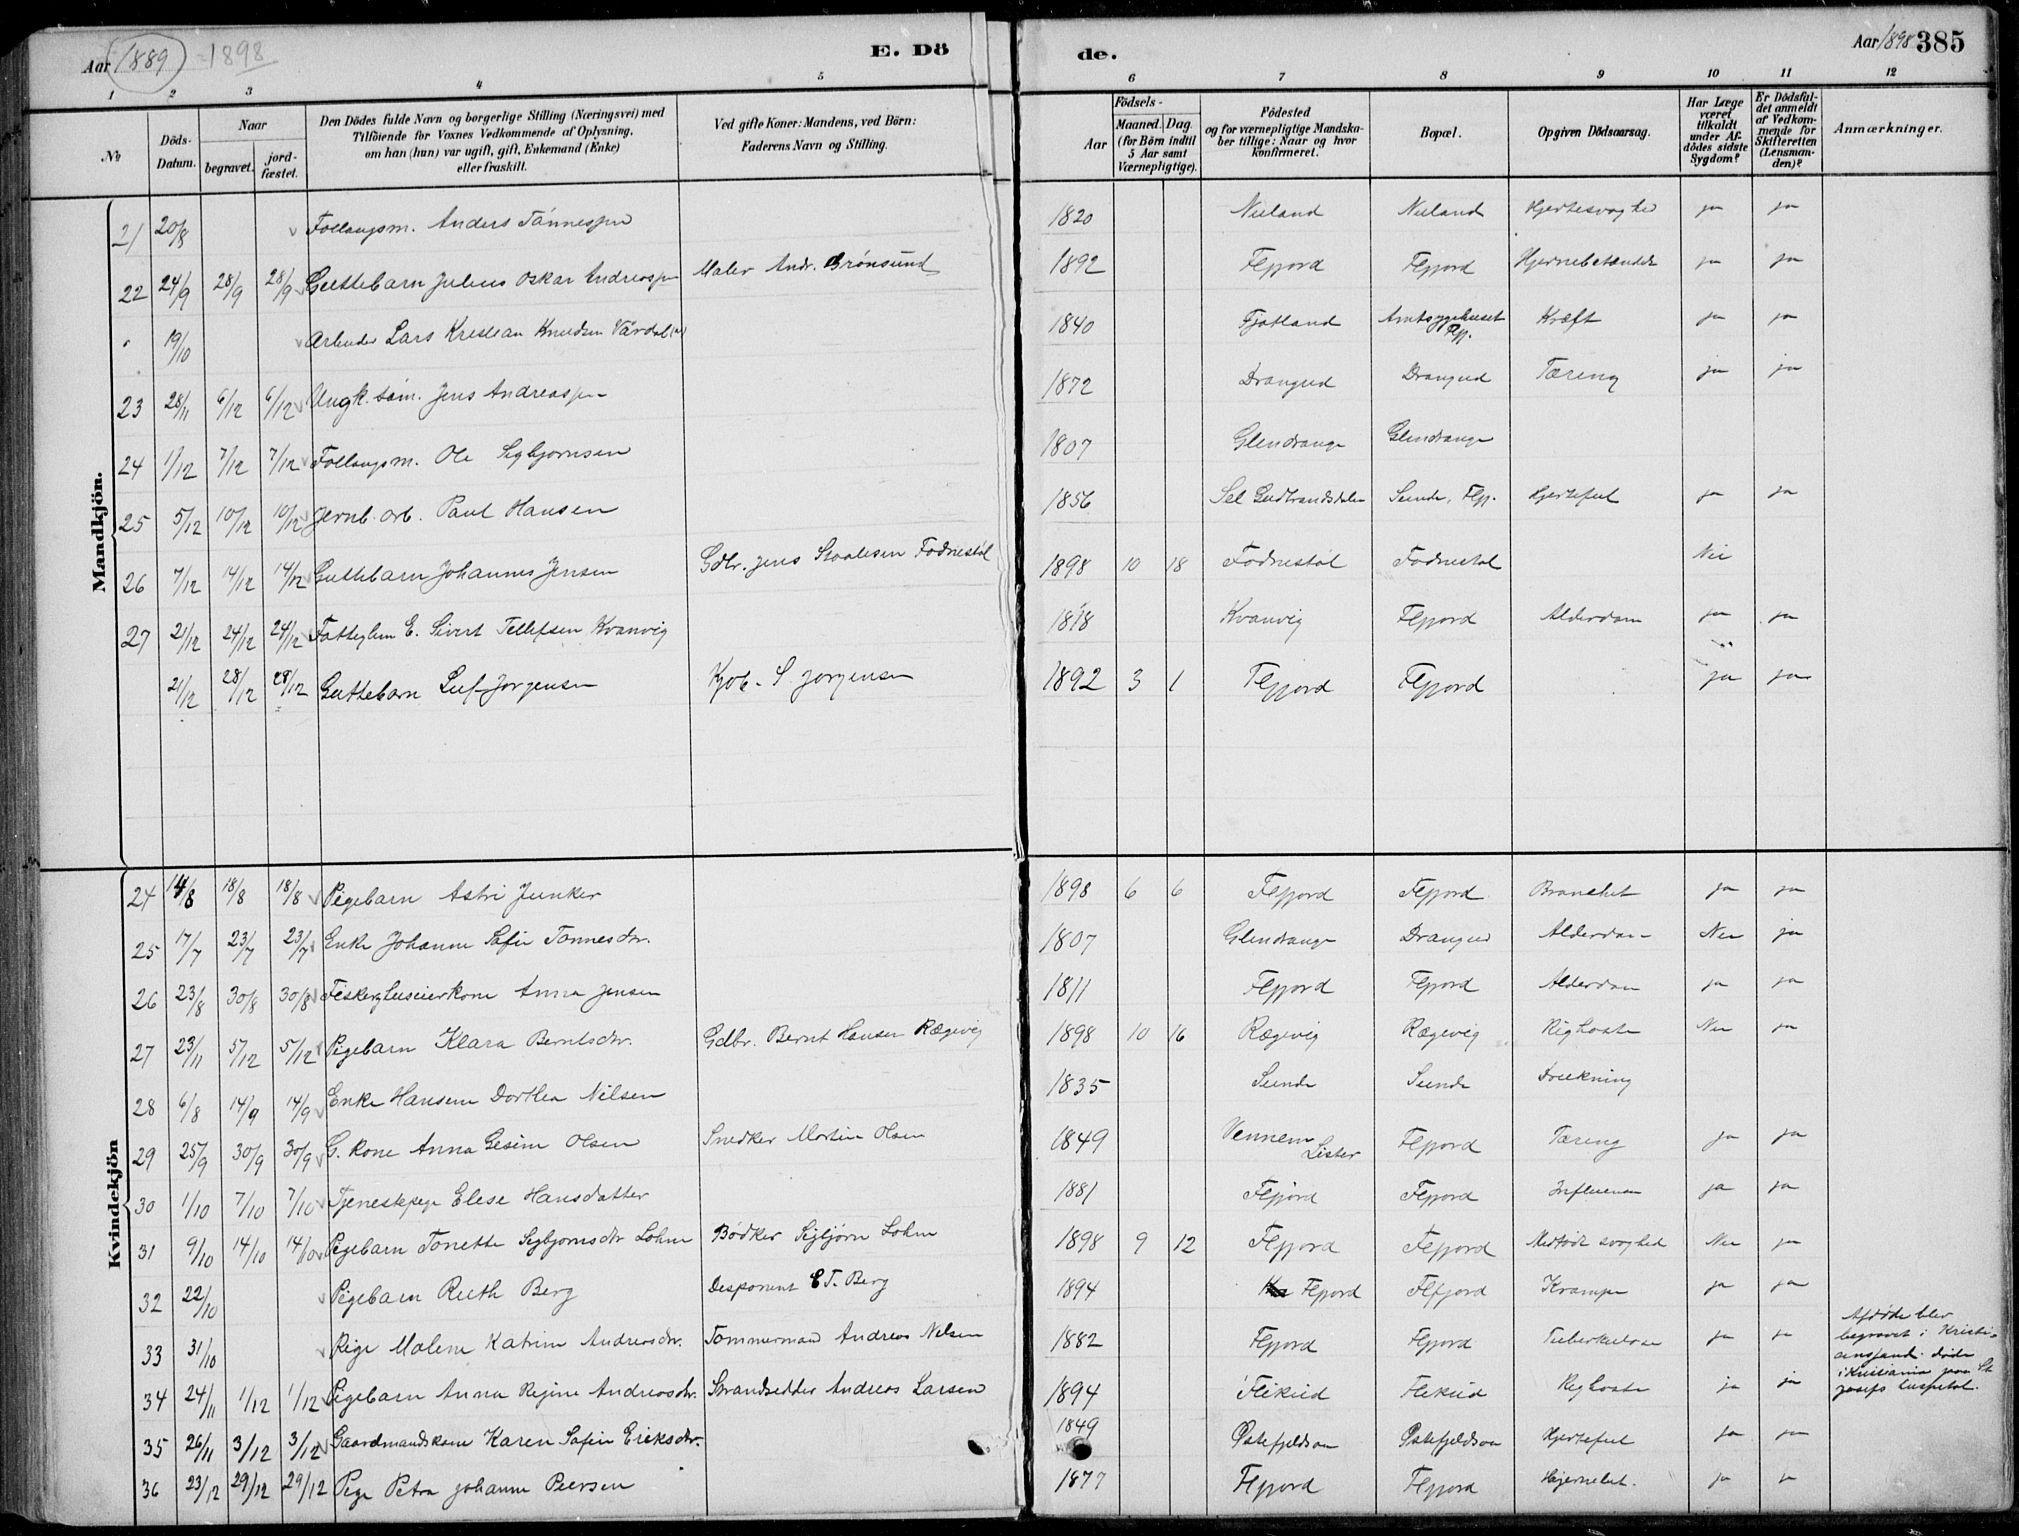 Aar 1889 = 1898 E. Dö de. Aar 1898 385
1 2 3 4 5 6 7 8 9 10 11 12
No
Döds-Datum.
Naar
begravet. jord-fæstet.
Den Dödes fulde Navn og borgerlige Stilling (Næringsvei) med
Tilföiende for Voxnes Vedkommende af Oplysning,
om han (hun) var ugift, gift, Enkemand (Enke)
eller fraskilt.
Ved gifte Koner: Mandens, ved Börn:
Faderens Navn og Stilling.
Födsels-
Aar Maaned. Dag.
(for Börn indtil
5 Aar samt
Værnepligtige).
Födested
og for værnepligtige Mandska-
ber tillige: Naar og hvor
konfirmeret.
Bopæl.
Opgiven Dödsaarsag.
Har Læge
været
tilkaldt
under Af-
dödes sidste
Sygdom?
Er Dödsfal-
det anmeldt
af Vedkom-
mende for
Skifteretten
(Lensman-
den)?
Anmærkninger.
Mandkjön.
21 20/8 Follaugsm. Anders Tönnessen 1820 Nuland Nuland Hjertesvaghed ja ja
22 24/9 28/9 28/9 Guttebarn Julius Oskar Andreassen Maler Andr. Brönsund 1892 Flfjord Flfjord Hjernebetændelse ja ja
19/10 Arbeider Lars Kristian Knudsen Vårdal 1840 Fjotland Amtssygehuset Flfj. Kræft ja ja
23 28/11 6/12 6/12 Ungk. söm. Jens Andreassen 1872 Drangeid Drangeid Tæring ja ja
24 1/12 7/12 7/12 Follaugsm. Ole Sigbjørnsen 1807 Glendrange Glendrange
25 5/12 10/12 10/12 Jernb. arb. Paul Hansen 1856 Sel Gudbrandsdalen Sunde, Flfj. Hjertefeil ja ja
26 7/12 14/12 14/12 Guttebarn Johannes Jensen Gdbr. Jens Staalesen Fodnestøl 1898 10 18 Fodnestøl Fodnestøl Nei
27 21/12 24/12 24/12 Fatteglem E. Sivert Tellefsen Kvanvig 1818 Kvanvig Flfjord Alderdom ja ja
21/12 28/12 28/12 Guttebarn Leif Jørgensen Kjøb. S Jørgensen 1892 3 1 Flfjord Flfjord ja ja
Kvindekjön
24 14/8 18/8 18/8 Pigebarn Astri Junker 1898 6 6 Flfjord Flfjord Bronchit ja ja
25 17/7 23/7 23/7 Enke Johanne Sofie Tønnesdtr. 1807 Glendrange Drangeid Alderdom Nei ja
26 23/8 30/8 30/8 Fisker huseierkone Anna Jensen 1811 Flfjord Flfjord Alderdom ja ja
27 23/11 5/12 5/12 Pigebarn Klara Berntsdtr. Gdbr. Bernt Hansen Rægevig 1898 10 16 Rægevig Rægevig Kighoste Nei ja
28 6/8 14/9 14/9 Enke Hansine Dorthea Nilsen 1835 Sunde Sunde Drukning
29 25/9 30/9 30/9 G. kone Anna Gesine Olsen Snedker Martin Olsen 1849 Vennem Lister Flfjord Tæring ja ja
30 1/10 7/10 7/10 Tjenestepige Elise Hansdatter 1881 Flfjord Flfjord Influensa ja ja
31 9/10 14/10 14/10 Pigebarn Tonette Sigbjørnsdtr Lohne Bødker Sigbjørn Lohne 1898 9 12 Flfjord Flfjord Medfødt svaghed Nei ja
32 22/10 Pigebarn Ruth Berg Disponent E T. Berg 1894 Flfjord Flfjord Krampe ja ja
33 31/10 Pige Malene Katrine Andreasdtr. Tømmermand Andreas Nilsen 1882 Flfjord Flfjord Tuberkulose ja ja
Afdøde blev
begravet i Kristi-
anssand. døde
i Kristiania paa St
Josefs hospital.
34 24/11 1/12 1/12 Pigebarn Anna Regine Andreasdtr. Strandsidder Andreas Larsen 1894 Flikeid Flikeid Kighoste ja ja
35 26/11 3/12 3/12 Gaardmandskone Karen Sofie Eriksdtr. 1849 Østefjeldsaa Østefjeldsaa Hjertefeil ja ja
36 23/12 29/12 29/12 Pige Petra Johanne Peersen 1877 Flfjord Flfjord Hjernebet. ja ja